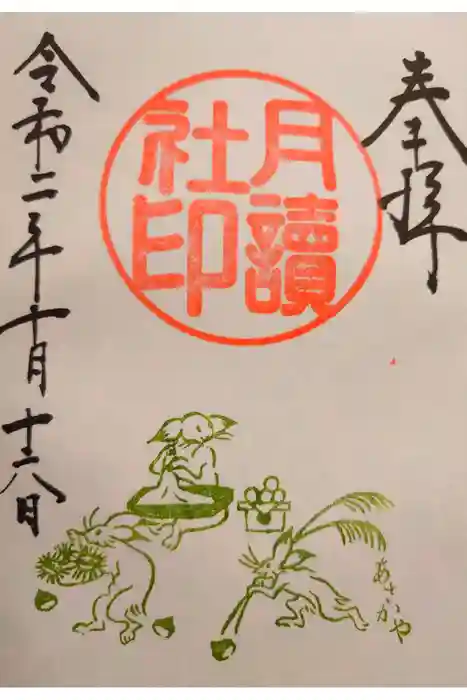 奉拝
月讀
社印
令和二年十月十六日
あさがや